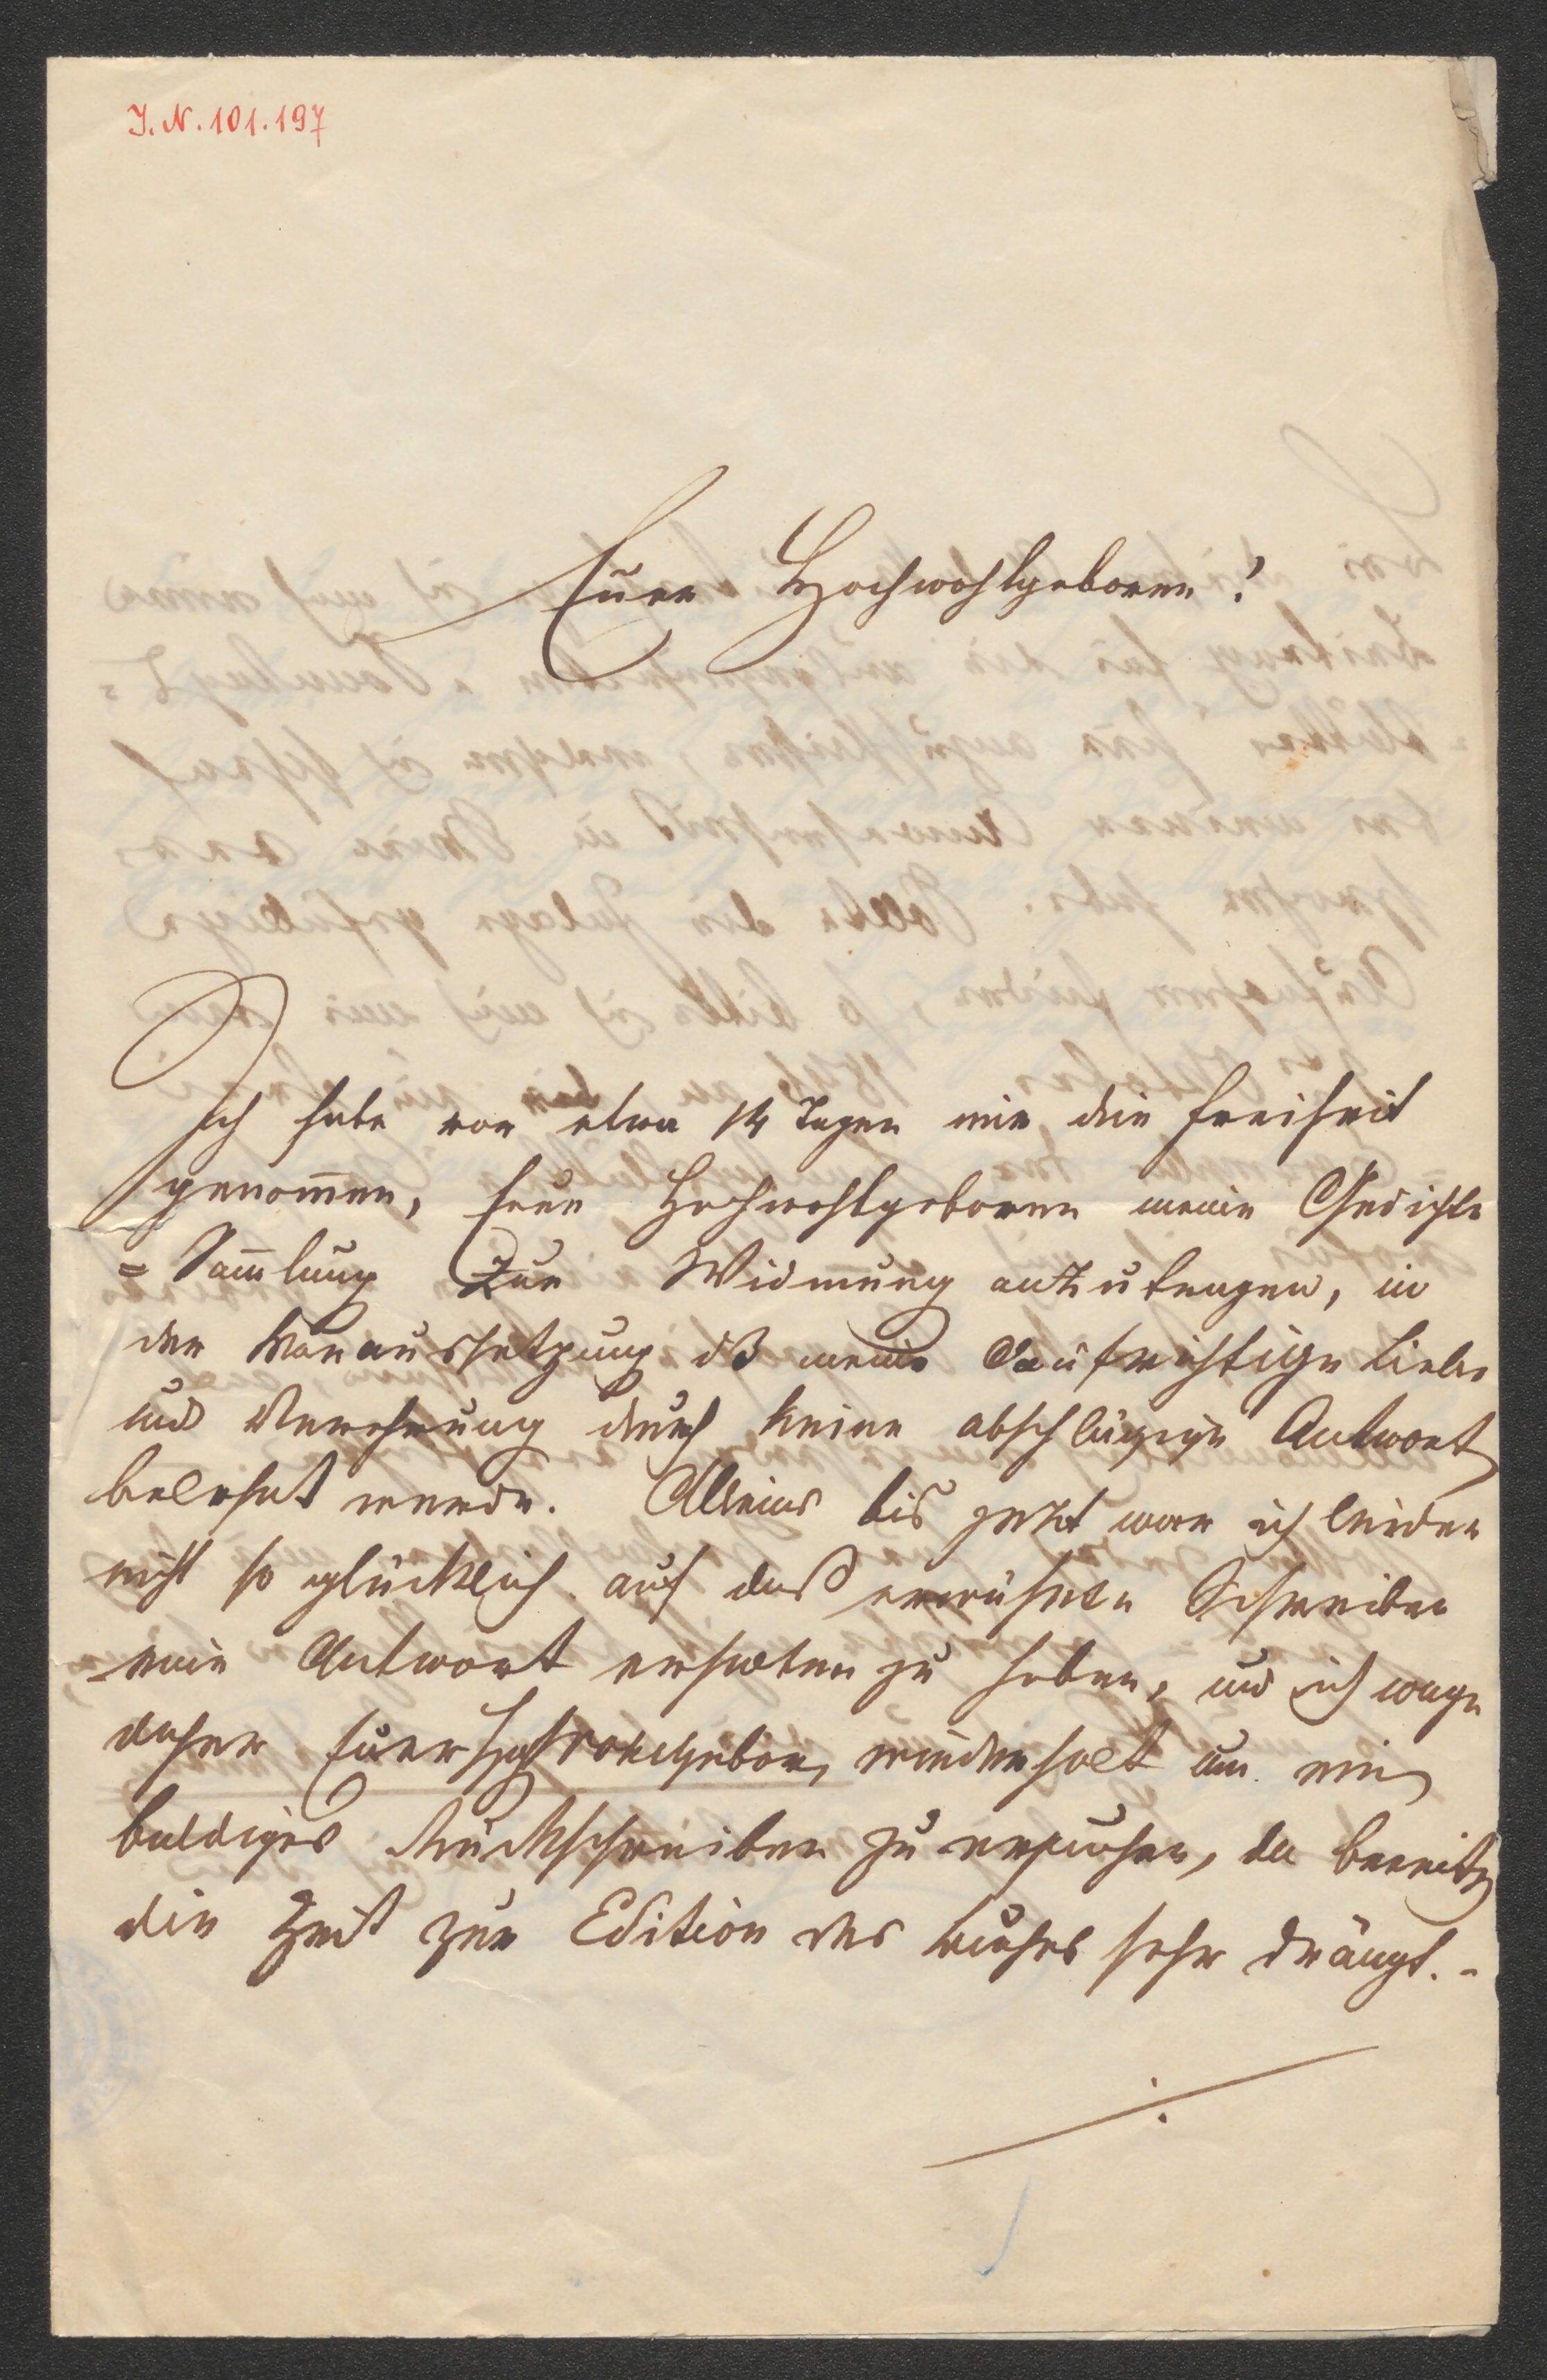 J. N. 101.197
Euer Hochwohlgeboren!
Ich habe vor etwa 14 Tagen mir die Freiheit
genom̄en, Euer Hochwohlgeboren meine Gedichte
= Sam̄lung zur Widmung anzutragen, in
der Voraussetzung dß meine aufrichtige Liebe
und Verehrung durch keine abschlägige Antwort
belohnt werde. Alleine bis jetzt war ich leider
nicht so glücklich auf daß erwähnte Schreiben
eine Antwort erhalten zu haben, und ich wage
daher Euer Hochwohlgeboren wiederholt um ein
baldiges Rückschreiben zu ersuchen, da bereits
die Zeit zur Edition des Buches sehr drängt. -
./.